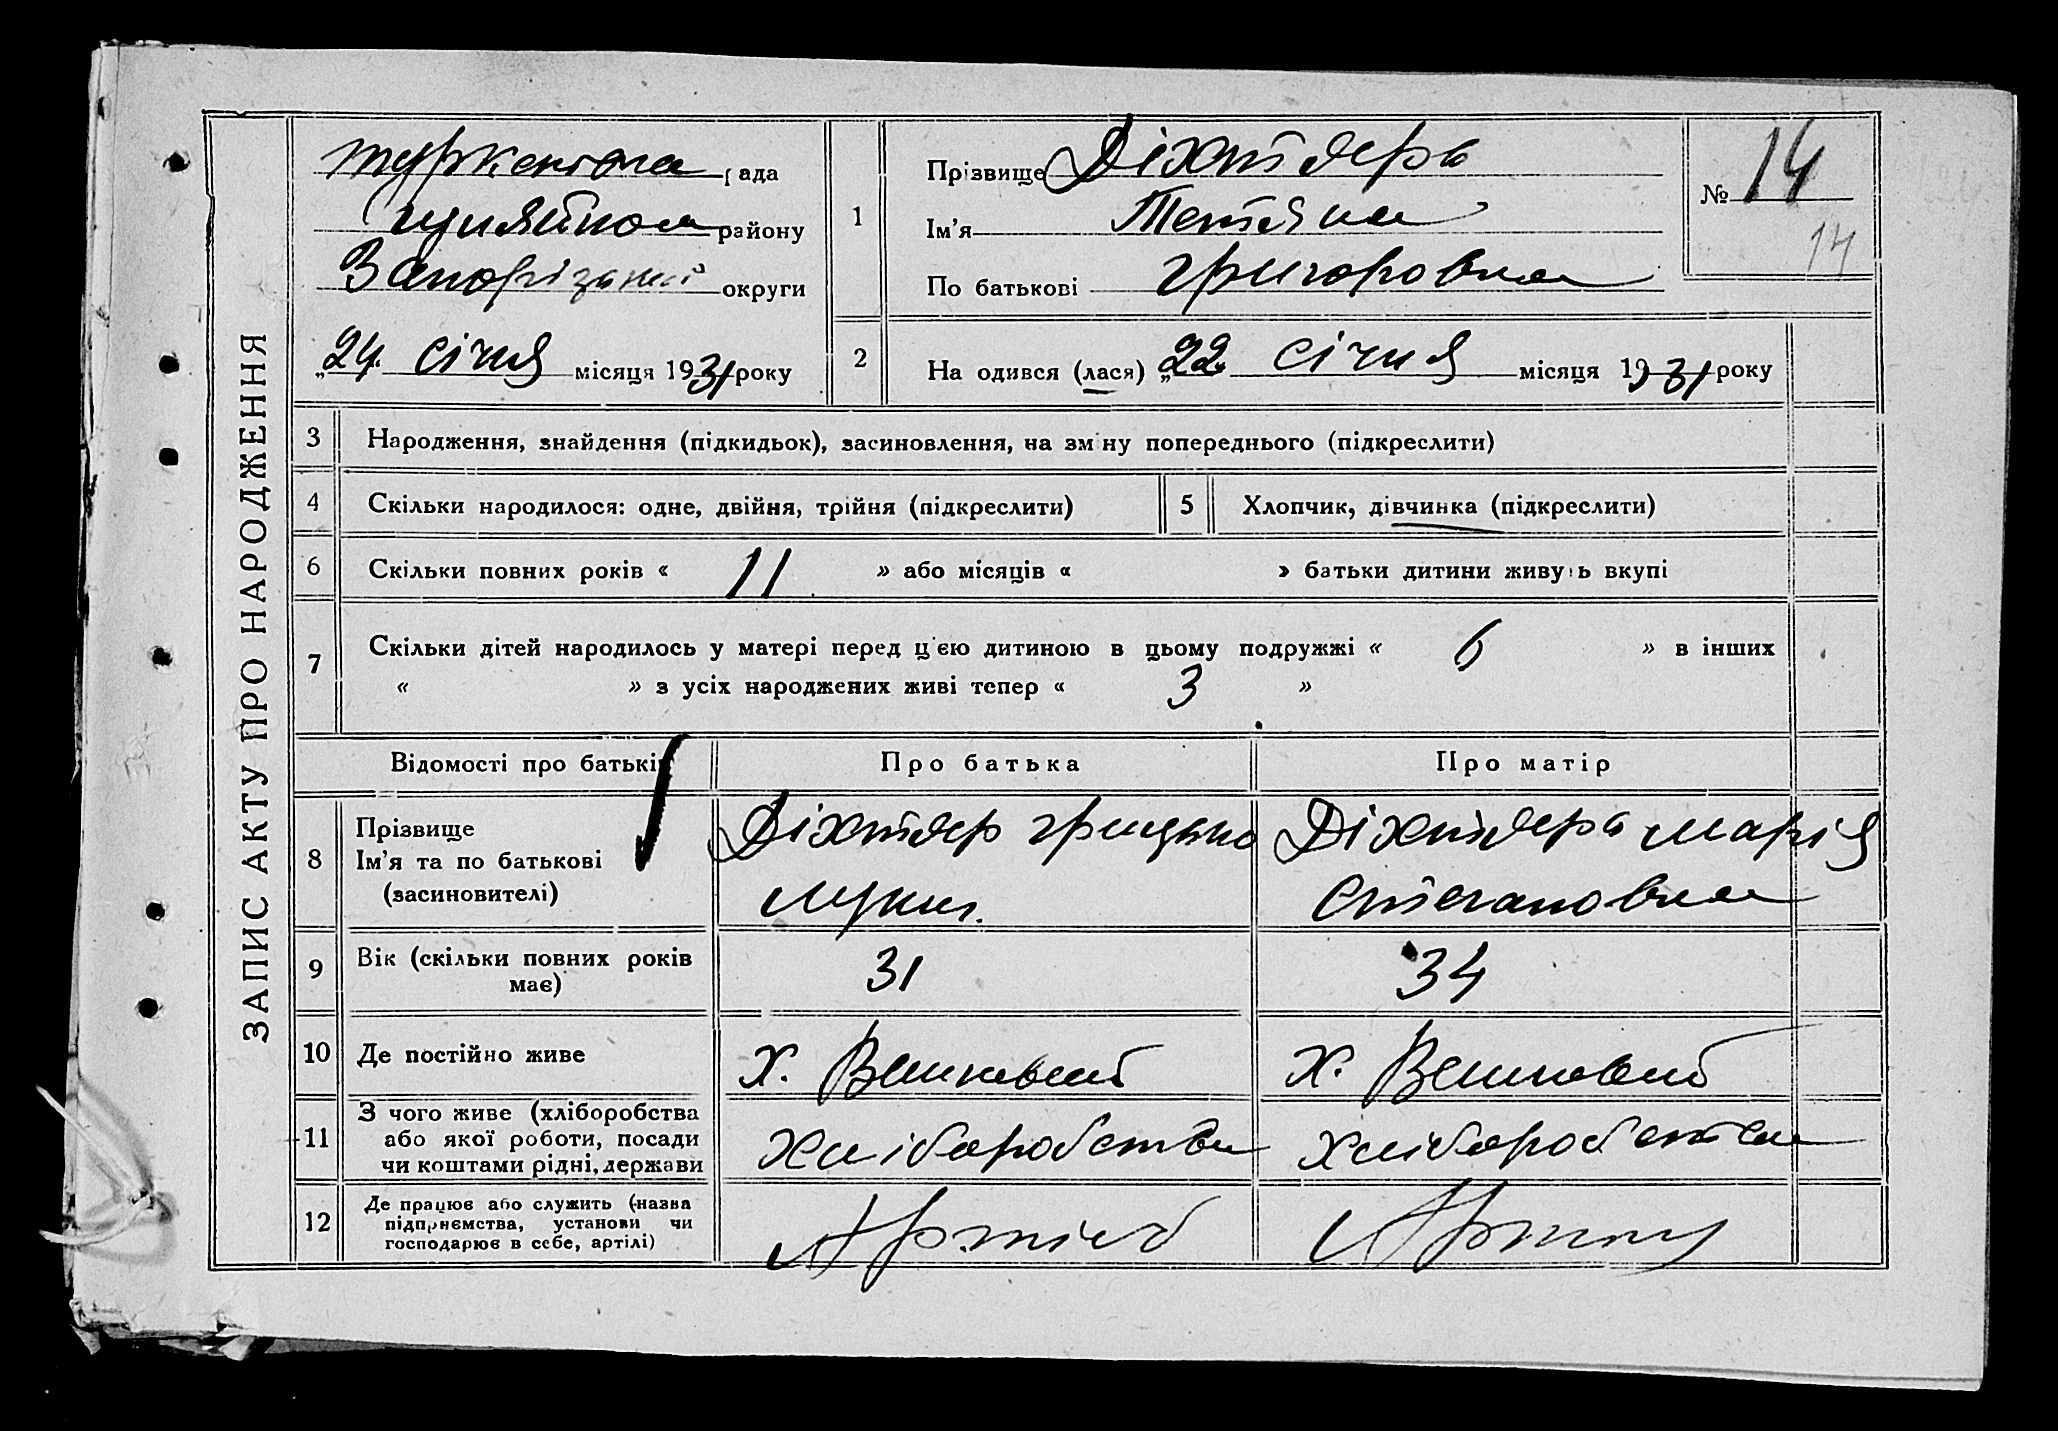 ЗАПИС АКТУ ПРО НАРОДЖЕННЯ
рада
району
округи
„24. січня місяця 1931 року
1
Прізвище Діхтярь
Ім'я Тетяна
По батькові Григоровна
№ 14
14
2
На одився (лася) „22 січня місяця 1931 року
3 Народження, знайдення (підкидьок), засиновлення, на зміну попереднього (підкреслити)
4 Скільки народилося: одне, двійня, трійня (підкреслити)
5 Хлопчик, дівчинка (підкреслити)
6 Скільки повних років « 11 » або місяців « » батьки дитини живуть вкупі
7 Скільки дітей народилось у матері перед цією дитиною в цьому подружжі « 6 » в інших
« » з усіх народжених живі тепер « 3 »
Відомості про батьків Про батька Про матір
8 Прізвище
Ім'я та по батькові
(засиновителі)
Діхтяр Грицько
Лукич.
Діхтярь Марія
Степановна
9 Вік (скільки повних років
має)
31
34
10 Де постійно живе
Х.
Х.
11 З чого живе (хліборобства
або якої роботи, посади
чи коштами рідні, держави
Хліборобства
Хліборобства
12 Де працює або служить (назва
підприємства, установи чи
господарює в себе, артілі)